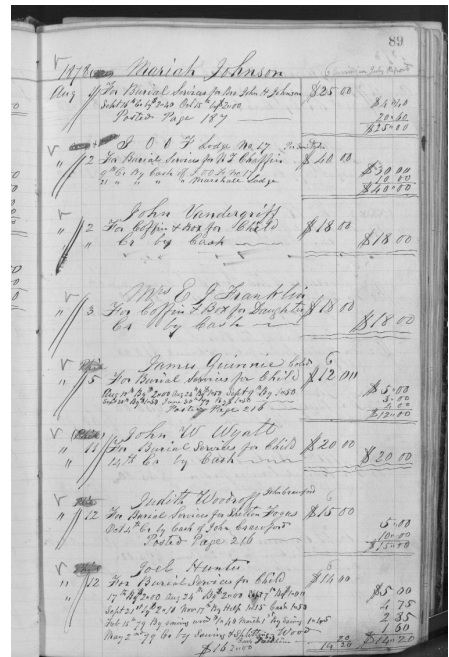 89
1878 Mariah Johnson
Aug 1 For Burial Services for John H Johnson $25.00
Sept 18th Cr by 2.40 Oct 15th by 2.00 $4.40
Posted Page 187 20.60
$25.00
I O O F Lodge No 17
" 2 For Burial Services for N T Chaffin $40.00
Cr By Cash of I O O F No 17 $30.00
" " " " Marshall Lodge 10.00
$40.00
John Vandergriff
" 2 For Coffin & Box for Child $18.00
Cr by Cash $18.00
Mrs E J Franklin
" 3 For Coffin & Box for Daughter $18.00
Cr by Cash $18.00
James Quinnie Cold
" 5 For Burial Services for Child $12.00
Aug 10th By 2.00 Aug 22 By 1.50 Sept 9th By 1.50 $5.00
June 30th 79
Posted Page 216
$12.00
John W Wyatt
" 11 For Burial Services for Child $20.00
14th Cr by Cash $20.00
Judith Woodroff
" 12 For Burial Services for $15.00
Oct 4th Cr by Cash of John Crawford 5.00
Posted Page 216 10.00
$15.00
Joel Hunter
" 12 For Burial Services for Child $14.00
17th By 2.00 Aug 24th By 2.00 Sept 7th By 1.00 $5.00
Sept 21st By 2.10 Nov 17th By 1.15 Cash 1.50 4.75
Feb 15th 79 By sawing wood 1.40 March 3rd By Sawing 2.85
May 2nd 79 Cr by Sawing & Splitting Wood 1.60
14.20 $14.20